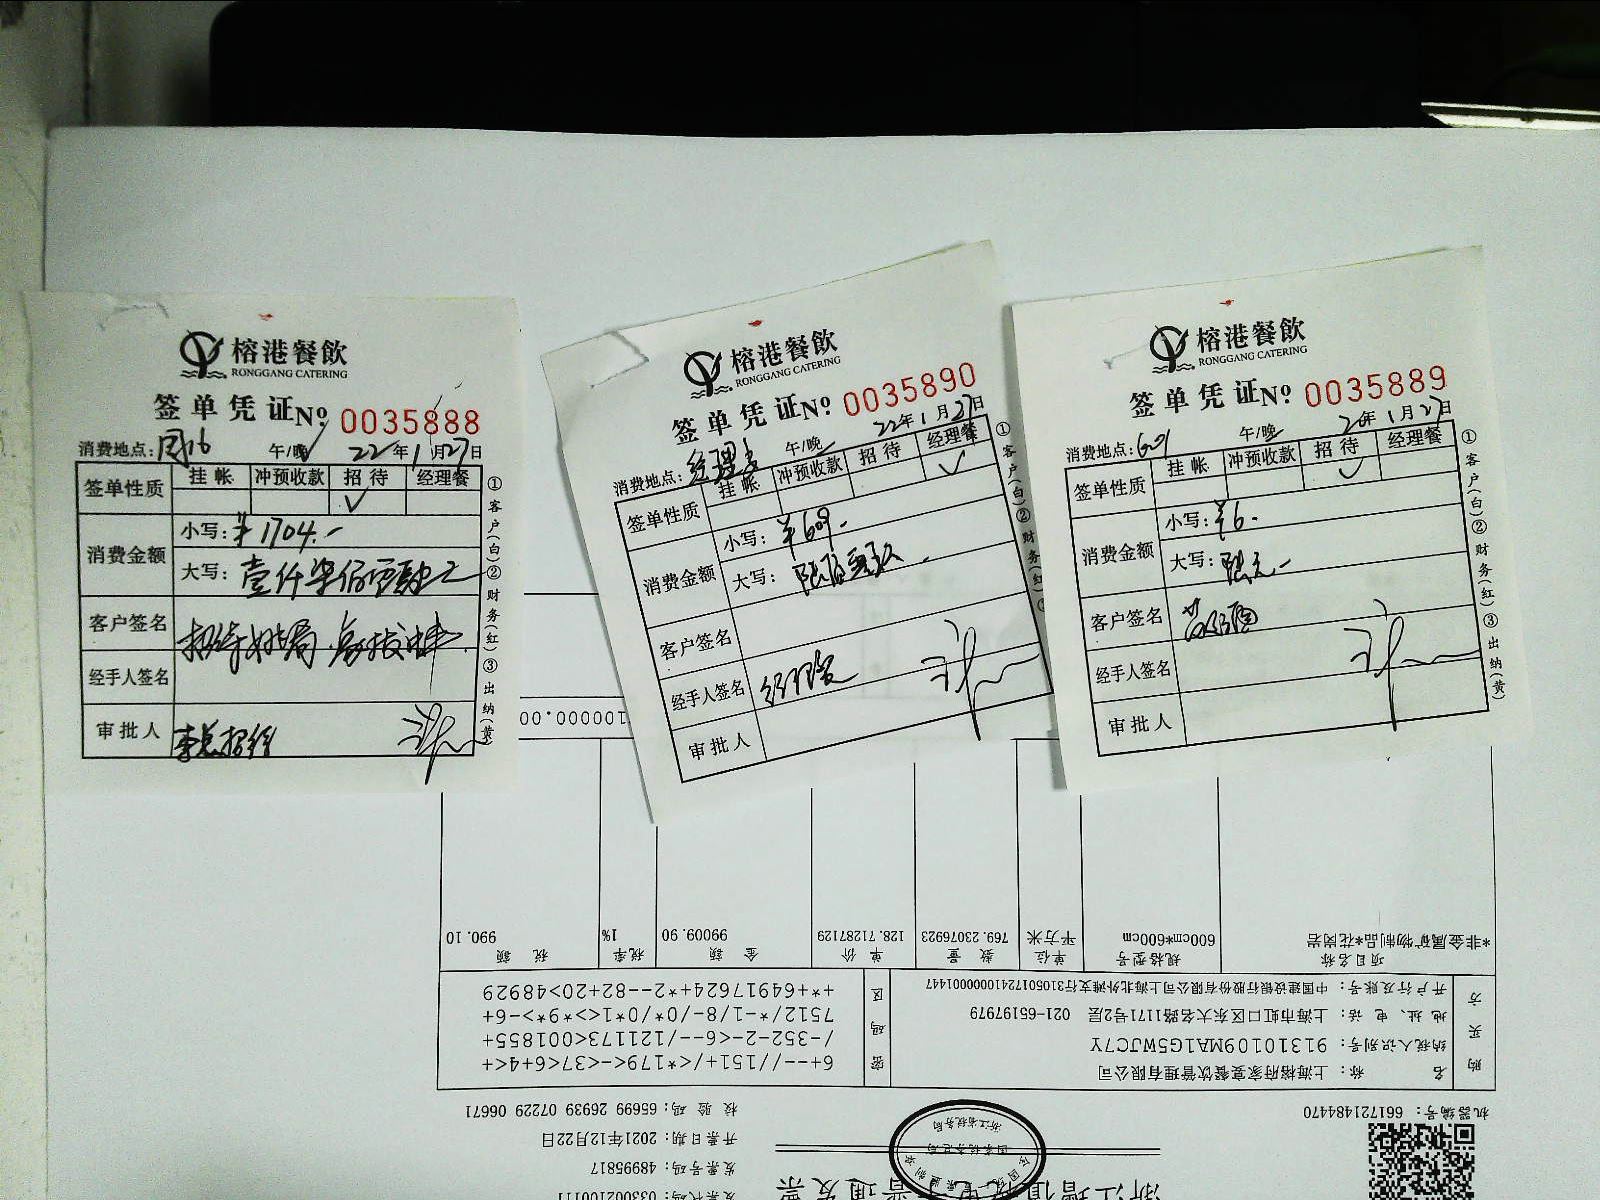 榕港餐飲
RONGGANG CATERING
签单凭证No 0035888
消费地点: 午/晚 22年1月27日
签单性质 挂帐 冲预收款 招待 经理餐
√
消费金额 小写: ¥1704.-
大写: 壹仟柒佰零肆元
客户签名
经手人签名
审批人 李总招待
①客户(白)②财务(红)③出纳(黄)
榕港餐飲
RONGGANG CATERING
签单凭证No 0035890
消费地点: 午/晚 22年1月27日
签单性质 挂帐 冲预收款 招待 经理餐
√
消费金额 小写: ¥609.-
大写: 陆佰零玖
客户签名
经手人签名 经理餐
审批人
①客户(白)②财务(红)
榕港餐飲
RONGGANG CATERING
签单凭证No 0035889
消费地点: 601 午/晚 年1月27日
签单性质 挂帐 冲预收款 招待 经理餐
√
消费金额 小写: ¥6.-
大写: 陆元.-
客户签名
经手人签名
审批人
①客户(白)②财务(红)③出纳(黄)
发票号码: 48995817
开票日期: 2021年12月22日
机器编号: 661721484470
校验码: 65699 26939 07229 06671
购买方
名称: 上海榕府家宴餐饮管理有限公司
纳税人识别号: 91310109MA1G5WJC7Y
地址、电话: 上海市虹口区东大名路1171号2层 021-65197979
开户行及账号: 中国建设银行股份有限公司上海北外滩支行31050172410000001447
密码区
6+--//151+/<*179<-<37<6+4<+
/-352-2-<6--/121173<001855+
7512/*-1/8-/0*/0*1<>*9*>-6+
+*+64917624+*2--82+20>48929
项目名称 规格型号 单位 数量 单价 金额 税率 税额
*非金属矿物制品*花岗岩 600cm*600cm 平方米 769.23076923 128.71287129 99009.90 1% 990.10
100000.00